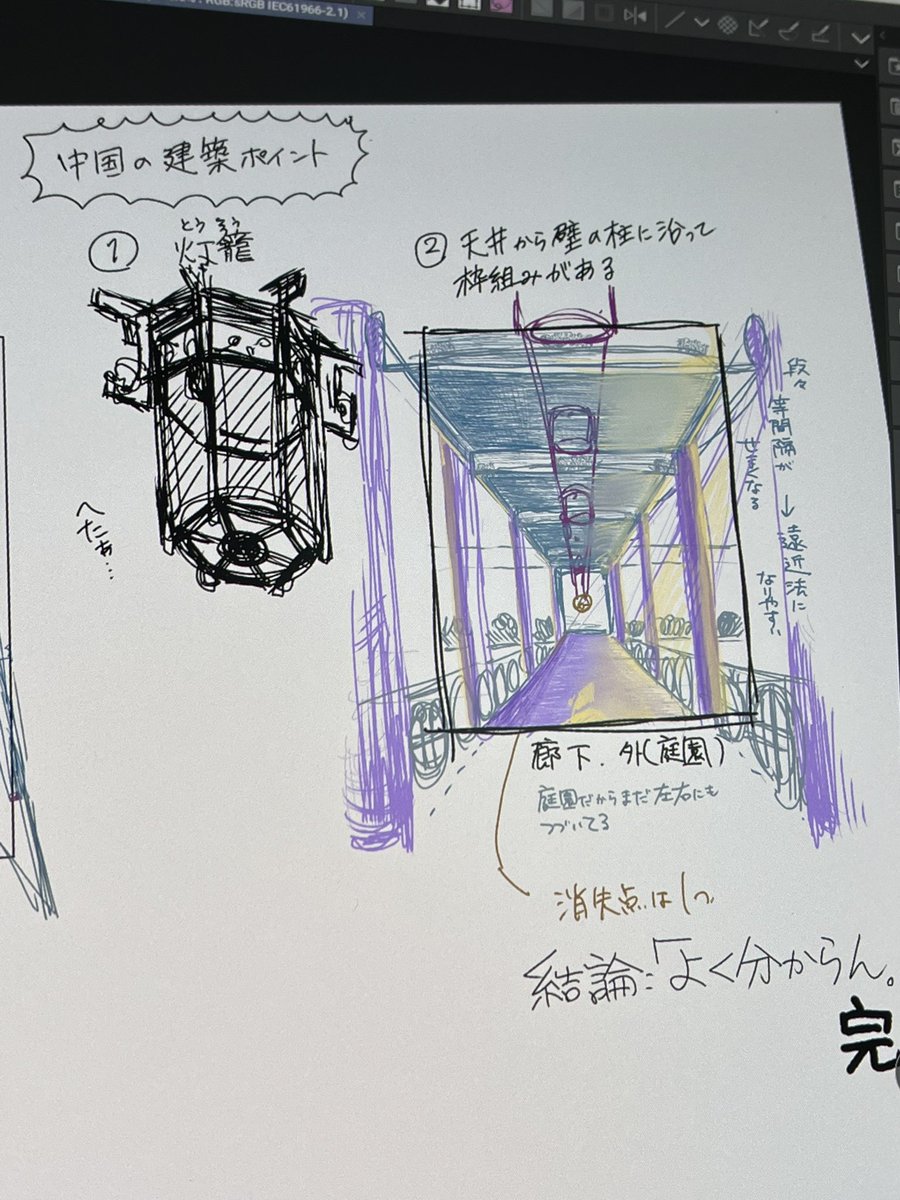 RGB:sRGB IEC61966-2.1)
中国の建築ポイント
①
とうろう
灯籠
へたぁ…
② 天井から壁の柱に沿って
枠組みがある
段々
等間隔が
せまくなる
→遠近法に
なりやすい
廊下、外(庭園)
庭園だからまだ左右にも
つづいてる
消失点は1つ
結論:「よく分からん。
完